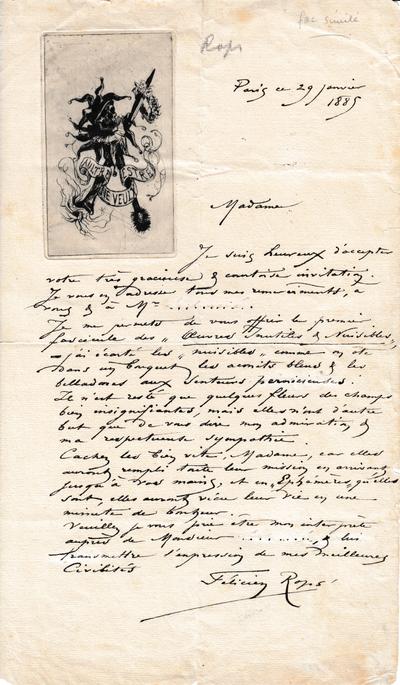 fac similé
Rops
Paris ce 29 janvier
1885
AULTRE ESTRE
NE VEULX
Madame
Je suis heureux d'accepter
votre très gracieuse & courtoise invitation.
Je vous en adresse tous mes remerciements, à
vous & à Mr ..........
Je me permets de vous offrir le premier
fascicule des „Œuvres Inutiles & Nuisibles„
– j'ai écarté les „nuisibles„ comme on ôte
dans un bouquet les aconits bleus & les
belladones aux senteurs pernicieuses.
Il n'est resté que quelques fleurs des champs
bien insignifiantes, mais elles n'ont d'autre
but que de vous dire mon admiration &
ma respectueuse sympathie.
Cachez les bien vite, Madame, car elles
auront rempli toute leur mission en arrivant
jusqu'à vos mains, et en „Ephémères„ qu'elles
sont, elles auront vécu leur vie en une
minute de bonheur.
Veuillez je vous prie être mon interprète
auprès de Monsieur .......... & lui
transmettre l'expression de mes meilleures
Civilités
Félicien Rops